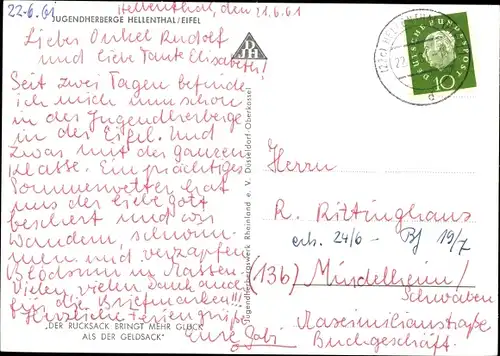 22-6.61
Hellenthal, den 21.6.61
JUGENDHERBERGE HELLENTHAL/EIFEL
Lieber Onkel Rudolf
und liebe Tante Elisabeth!
Seit zwei Tagen befinde
ich mich nun schon
in der Jugendherberge
in der Eifel. Und
zwar mit der ganzen
Klasse. Ein prächtiges
Sommerwetter hat
uns der liebe Gott
beschert und wir
wandern, schwim-
men und verzapfen
Blödsinn in Massen.
Vielen, vielen Dank auch
für die Briefmarken!!!
Herzliche Feriengrüße
Eure Gabi
"DER RUCKSACK BRINGT MEHR GLÜCK
ALS DER GELDSACK"
Jugendherbergswerk Rheinland e. V. Düsseldorf-Oberkassel
DJH
(22c) HELLENTHAL
22.
d
DEUTSCHE BUNDESPOST
10
Herrn
R. Rittinghaus
erh. 24/6 - Bf 19/7
(13b) Mindelheim/
Schwaben
Maximilianstraße
Buchgeschäft.